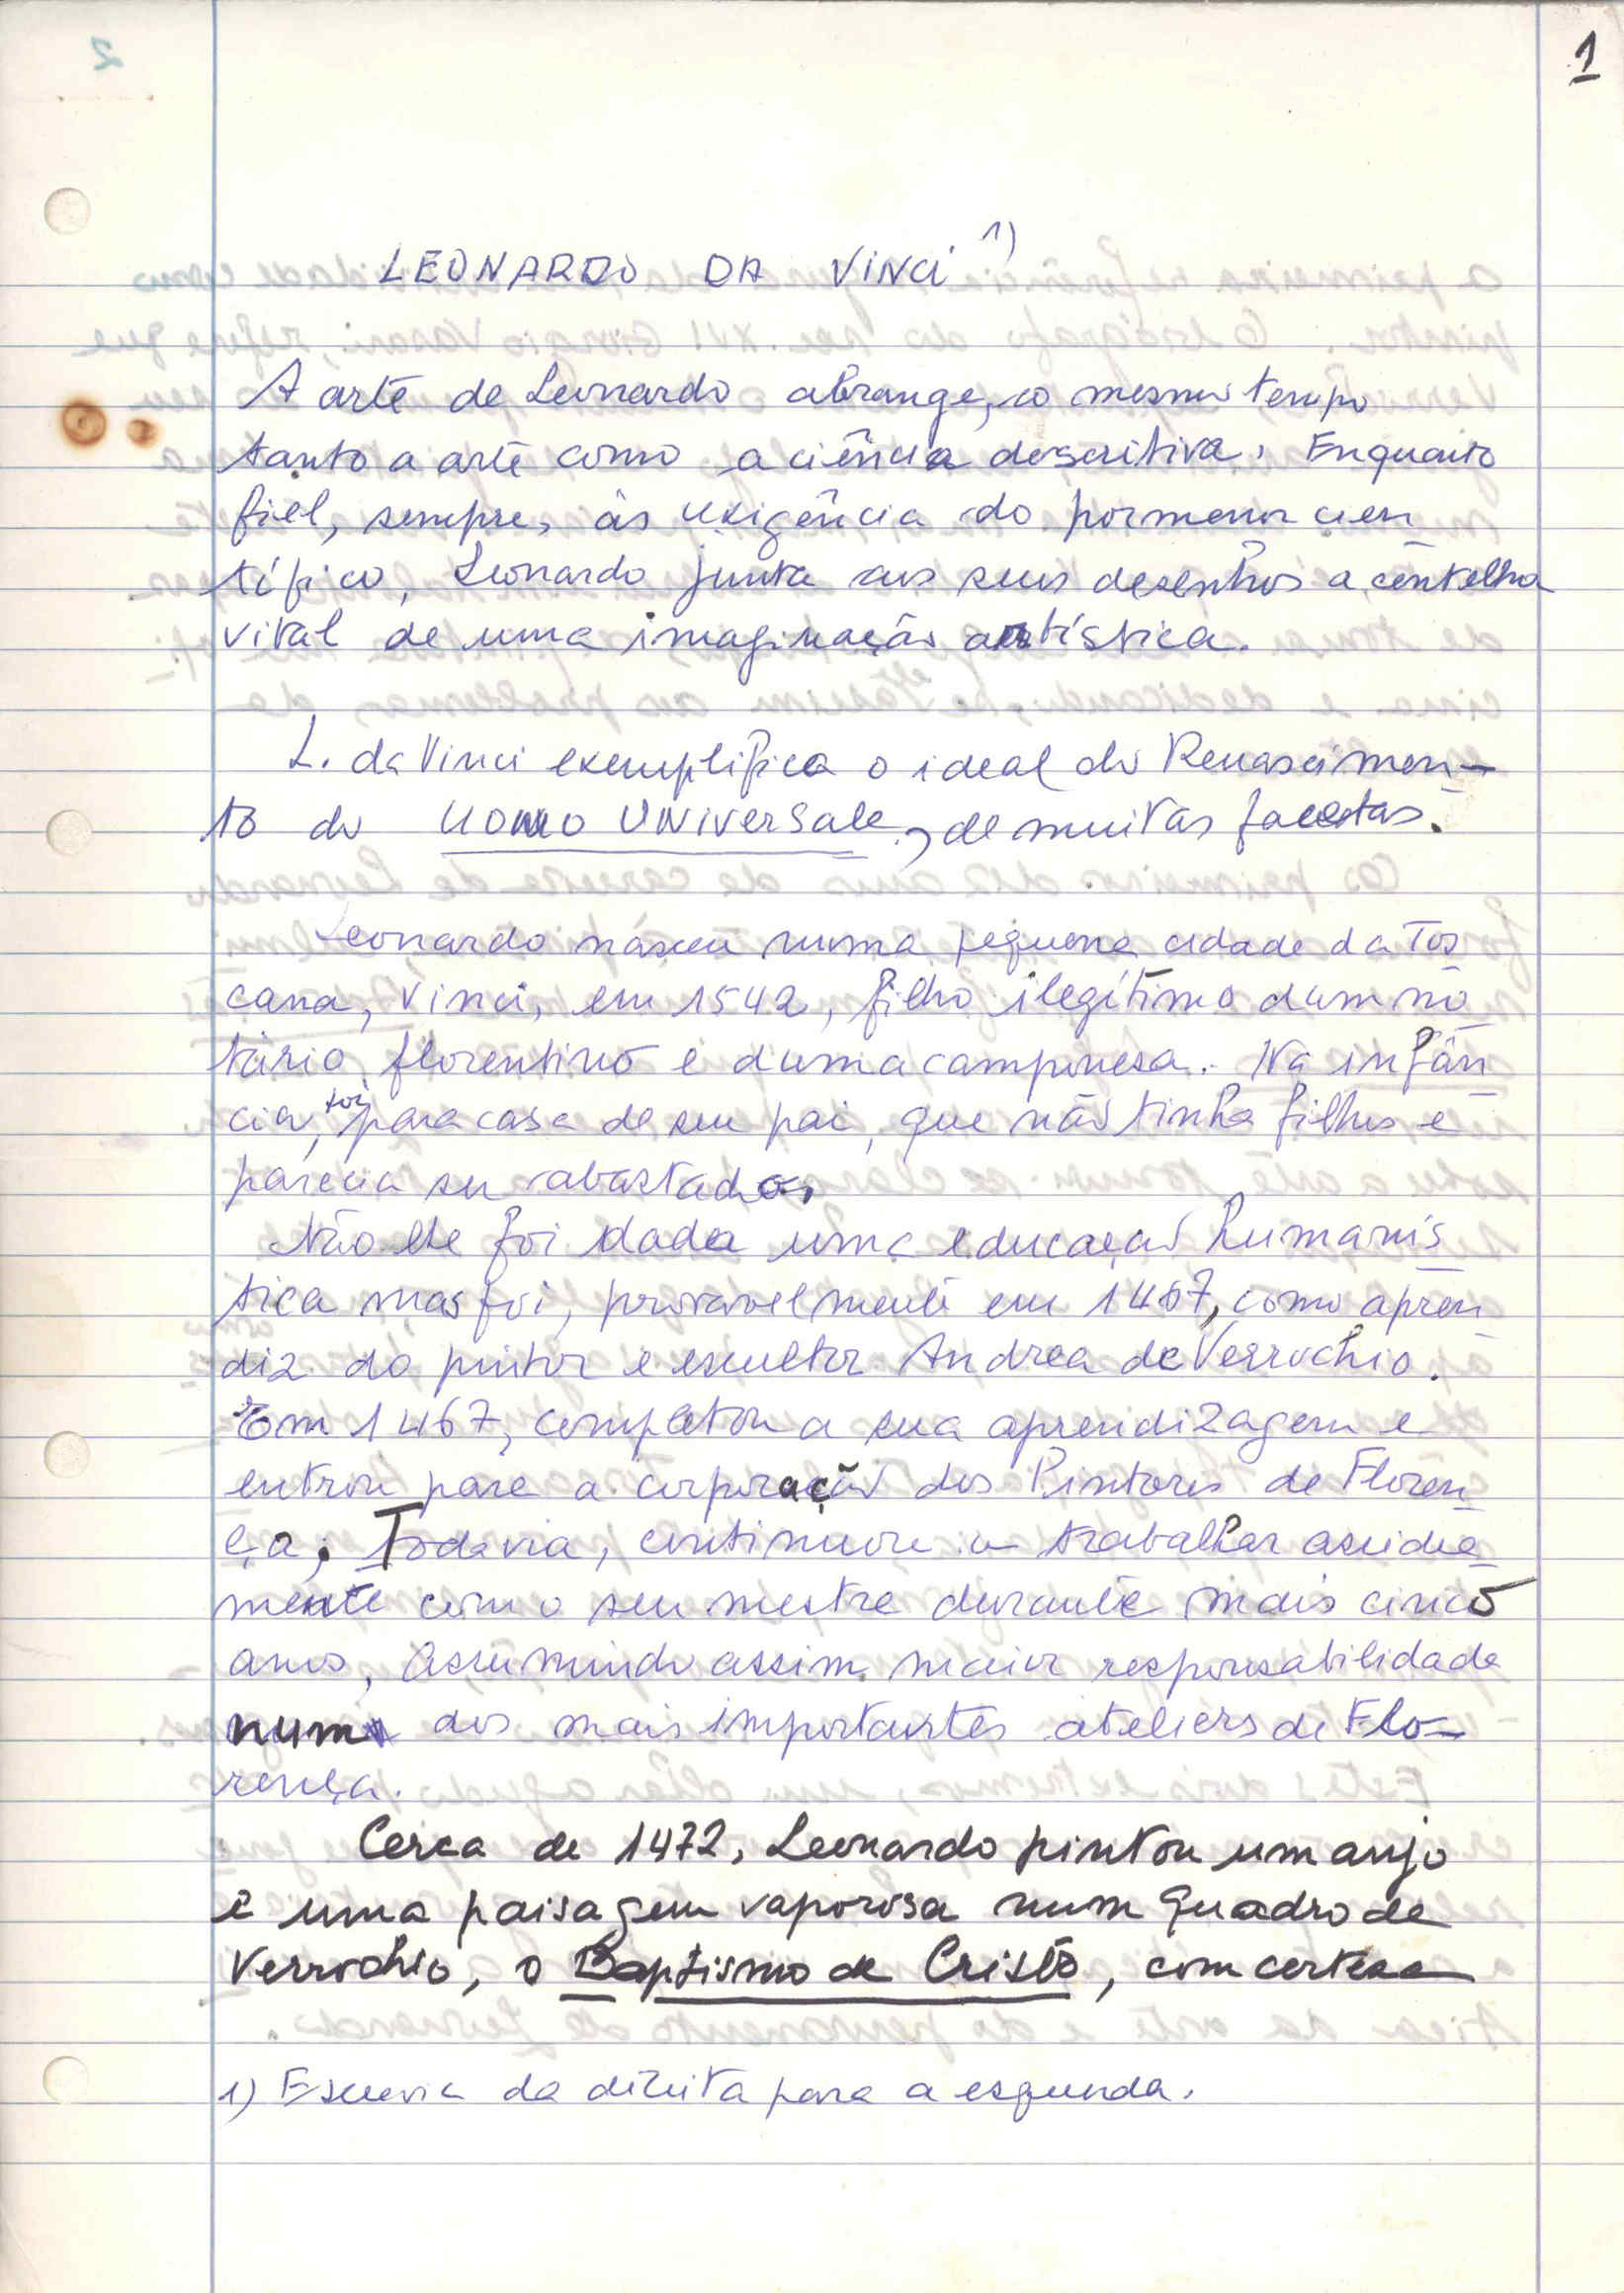 1
LEONARDO DA VINCI 1)
A arte de Leonardo abrange, ao mesmo tempo
tanto a arte como a ciência descritiva. Enquanto
fiel, sempre, às exigência do pormenor cien
tífico, Leonardo junta aos seus desenhos a centelha
vital de uma imaginação artística.
L. da Vinci exemplifica o ideal do Renascimen-
to do Uomo Universale, de muitas facetas.
Leonardo nasceu numa pequena cidade da Tos
cana, Vinci, em 1542, filho ilegítimo dum no
tário florentino e duma camponesa. Na infân
cia, foi para casa de seu pai, que não tinha filhos e
parecia ser abastado.
Não lhe foi dada uma educação humanís
tica mas foi, provavelmente em 1467, como apren
diz do pintor e escultor Andrea de Verrochio.
Em 1467, completou a sua aprendizagem e
entrou para a corporação dos Pintores de Floren
ça; Todavia, continuou a trabalhar assidua
mente com o seu mestre durante mais cinco
anos, assumindo assim maior responsabilidade
num dos mais importantes ateliers de Flo-
rença.
Cerca de 1472, Leonardo pintou um anjo
e uma paisagem vaporosa num quadro de
Verrochio, o Baptismo de Cristo, com certeza
1) Escrevia da direita para a esquerda.